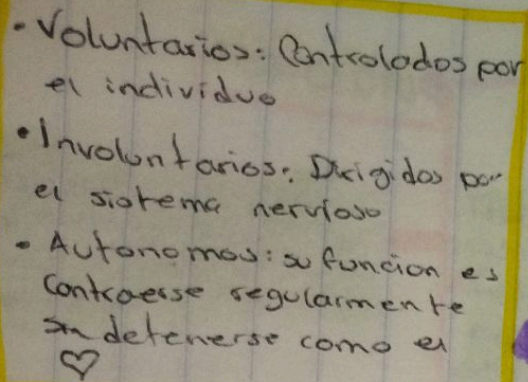 • Voluntarios: Controlados por
el individuo
• Involuntarios: Dirigidos por
el sistema nervioso
• Autonomos: su funcion es
contraerse regularmente
sin detenerse como el
♡